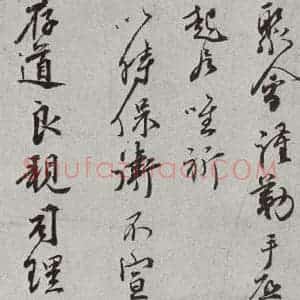 聚會謹勒手啟
起居唯祈
以時保衛不宣
存道良親司理
Shufazidian.COM